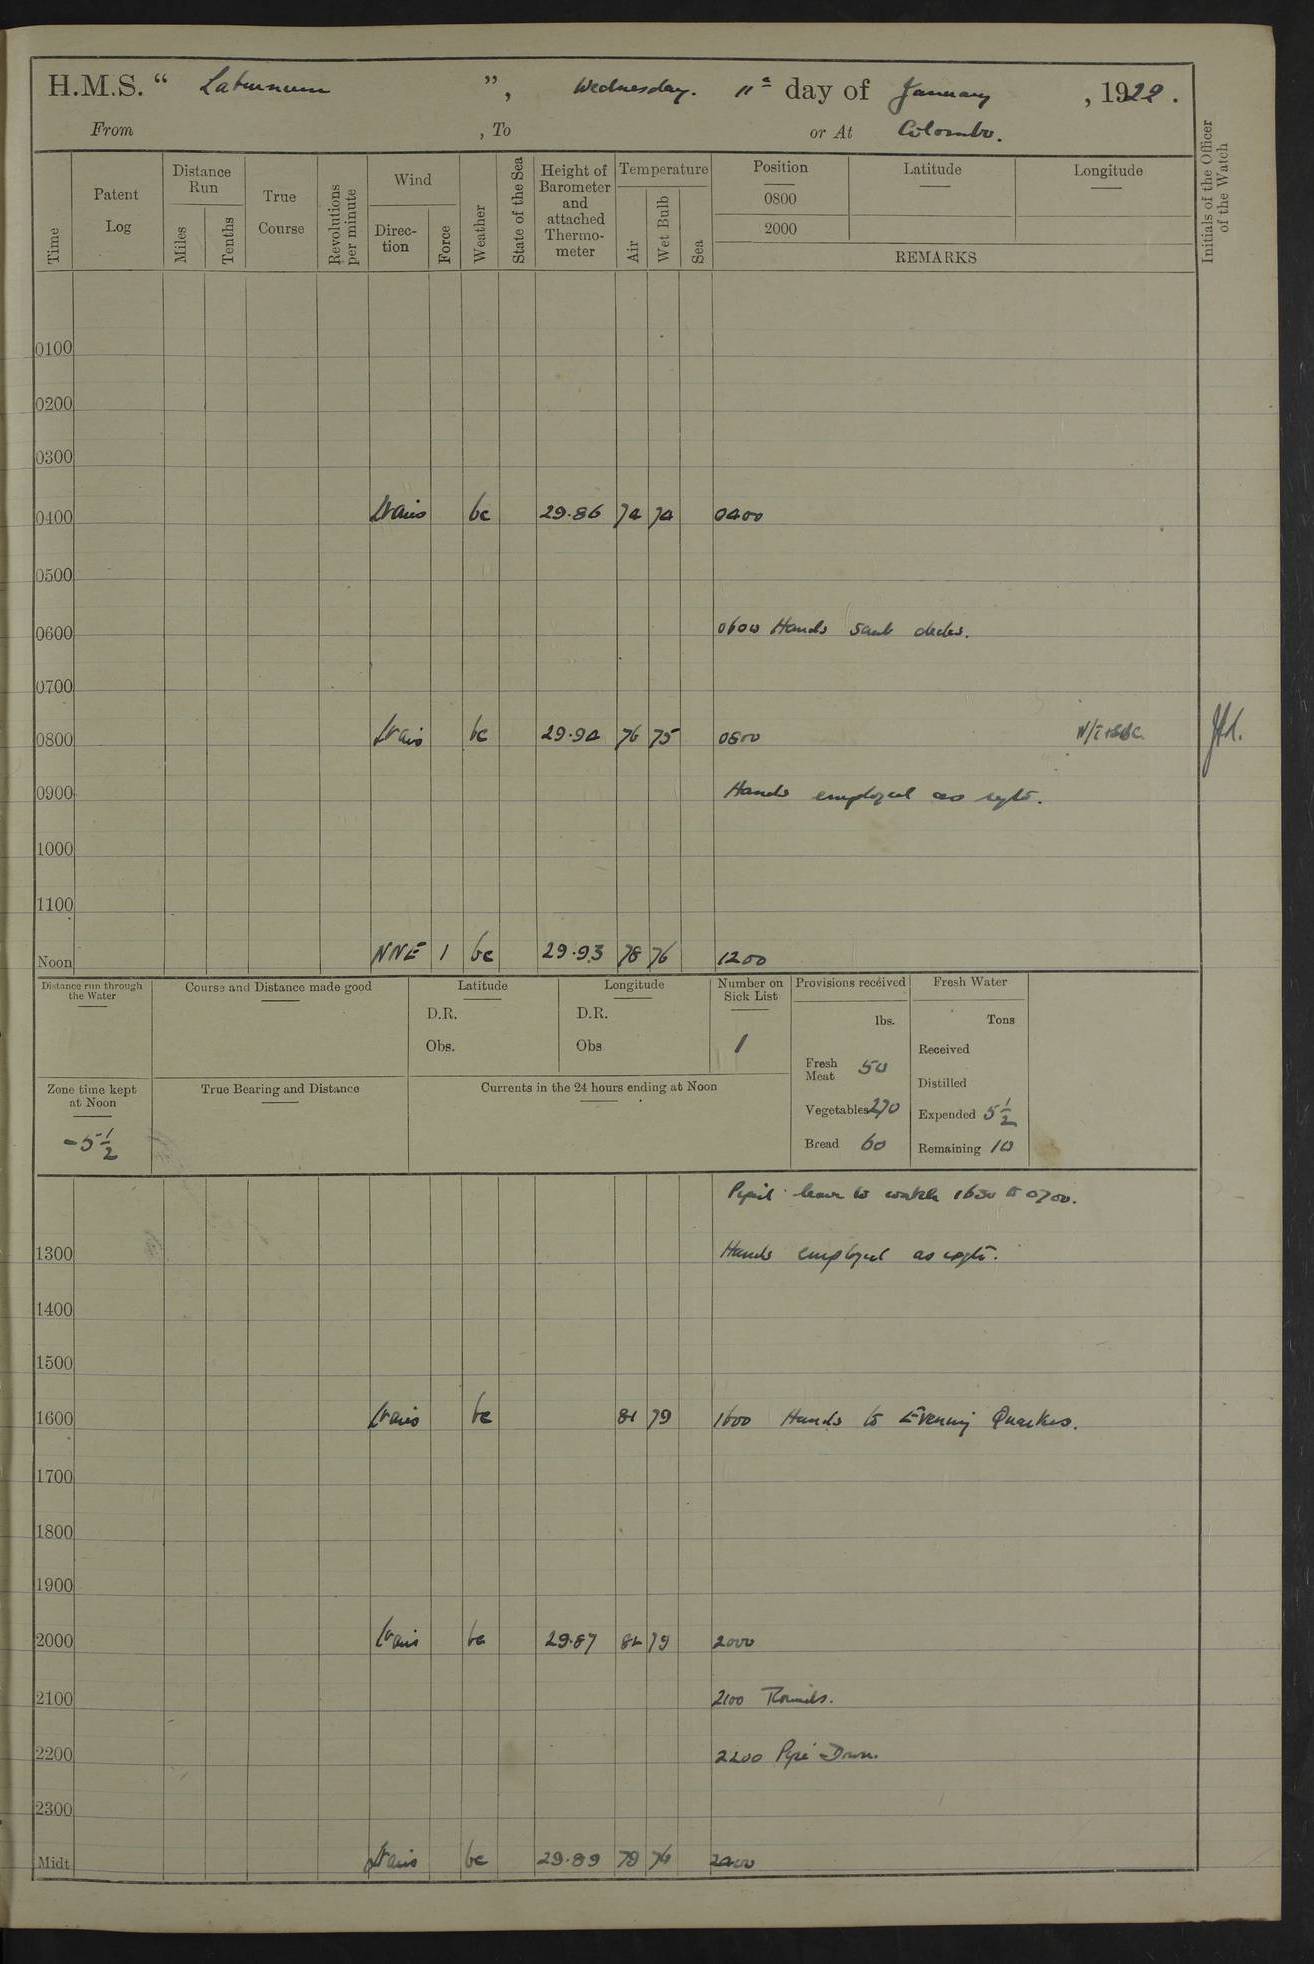 H.M.S. “ Laburnum ”, Wednesday. 11th day of January, 1922.
From , To or At Colombo.
Time
Patent Log
Distance Run
Miles
Tenths
True Course
Revolutions per minute
Wind
Direction
Force
Weather
State of the Sea
Height of Barometer and attached Thermometer
Temperature
Air
Wet Bulb
Sea
Position
0800
2000
Latitude
Longitude
REMARKS
Initials of the Officer of the Watch
0100
0200
0300
0400 Lt airs bc 29.86 74 74 0400
0500
0600 0600 Hands scrub decks.
0700
0800 Lt airs bc 29.94 76 75 0800
0900 Hands employed as reqte.
1000
1100
Noon NNE 1 bc 29.93 78 76 1200
Distance run through the Water
Course and Distance made good
Latitude
D.R.
Obs.
Longitude
D.R.
Obs
Number on Sick List
1
Provisions received
lbs.
Fresh Meat 50
Vegetables 270
Bread 60
Fresh Water
Tons
Received
Distilled
Expended 5 1/2
Remaining 10
Zone time kept at Noon
-5 1/2
True Bearing and Distance
Currents in the 24 hours ending at Noon
Piped leave to watch 1630 to 0700.
1300 Hands employed as reqte.
1400
1500
1600 Lt airs bc 81 79 1600 Hands to Evening Quarters.
1700
1800
1900
2000 Lt airs bc 29.87 82 79 2000
2100 2100 Rounds.
2200 2200 Pipe Down.
2300
Midt Lt airs bc 29.89 79 2400